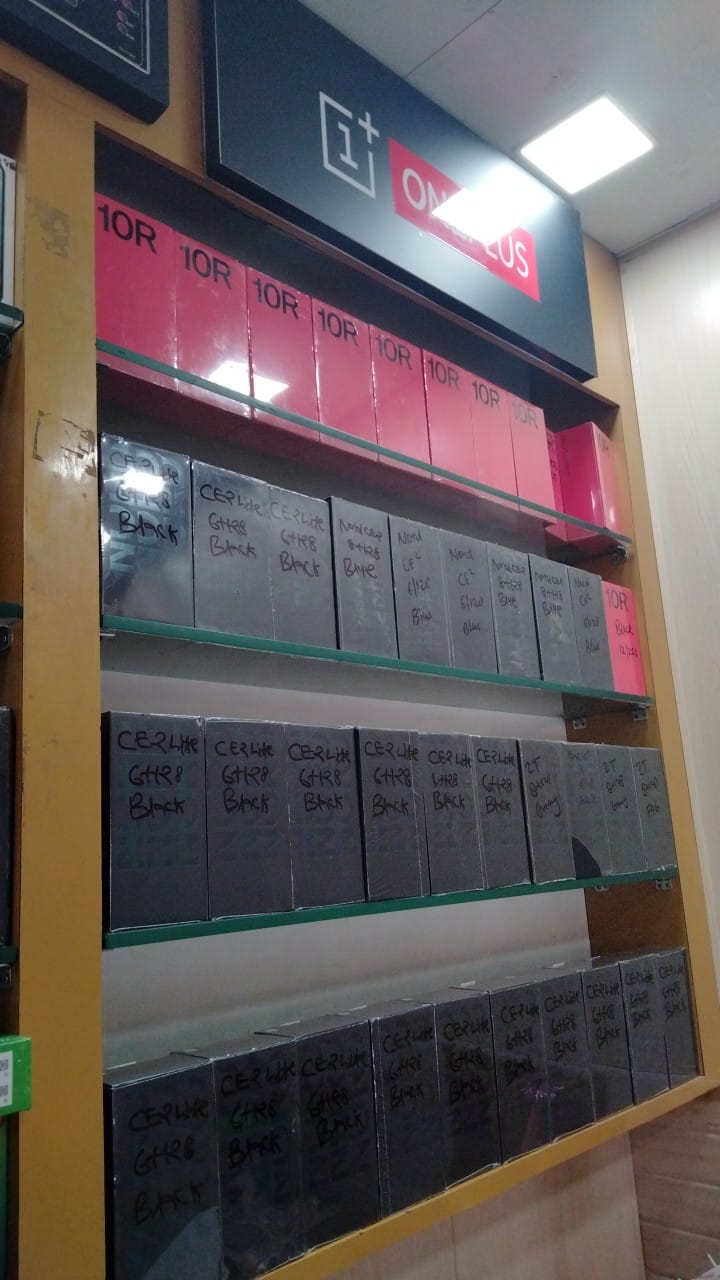 1+ ONEPLUS
10R
10R
10R
10R
10R
10R
10R
10R
CE2 Lite
6+128
Black
CE2 Lite
6+128
Black
CE2 Lite
6+128
Black
Nord CE2
8+128
Blue
Nord
CE2
6/128
Blue
Nord
CE2
6/128
Blue
Nord CE2
8+128
Blue
Nord CE2
8+128
Blue
Nord
CE2
6/128
Blue
10R
Black
12/256
CE2 Lite
6+128
Black
CE2 Lite
6+128
Black
CE2 Lite
6+128
Black
CE2 Lite
6+128
Black
CE2 Lite
6+128
Black
CE2 Lite
6+128
Black
2T
Gray
2T
2T
CE2 Lite
6+128
Black
CE2 Lite
6+128
Black
CE2 Lite
6+128
Black
CE2 Lite
6+128
Black
CE2 Lite
6+128
Black
CE2 Lite
6+128
Black
CE2 Lite
6+128
Black
CE2 Lite
6+128
Black
CE2 Lite
6+128
Black
CE2 Lite
6+128
Black